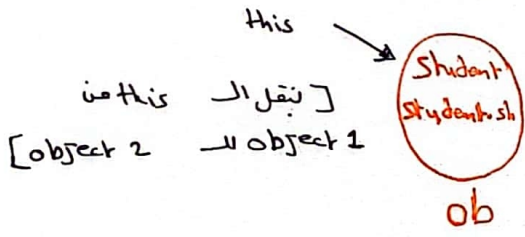 this
Student
Student.sh
[بنقل الـ this من
object 1 للـ object 2]
ob